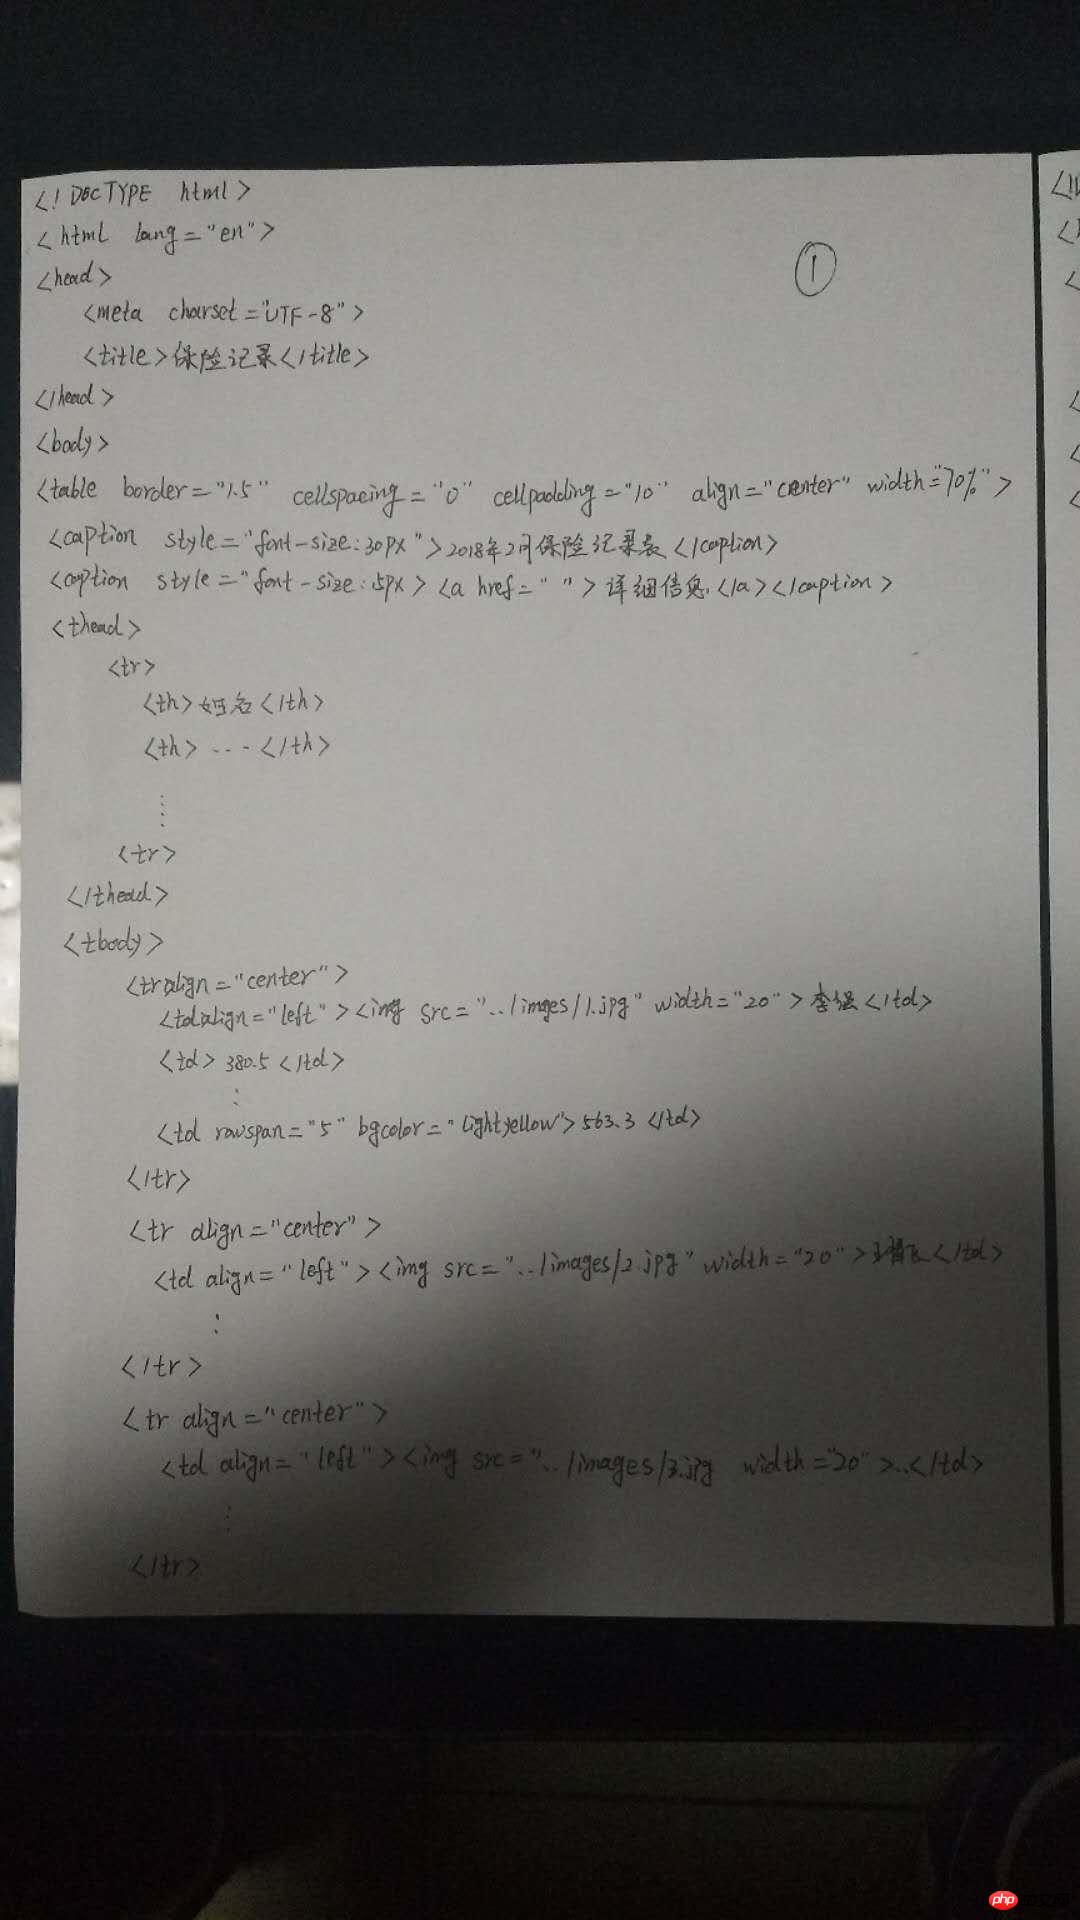 <!DOCTYPE html>
<html lang="en">
①
<head>
<meta charset="UTF-8">
<title>保险记录</title>
</head>
<body>
<table border="1.5" cellspacing="0" cellpadding="10" align="center" width="70%">
<caption style="font-size:30px">2018年2月保险记录表</caption>
<caption style="font-size:15px><a href=" ">详细信息</a></caption>
<thead>
<tr>
<th>姓名</th>
<th>...</th>
⋮
<tr>
</thead>
<tbody>
<tr align="center">
<td align="left"><img src="../images/1.jpg" width="20">李强</td>
<td>380.5</td>
⋮
<td rowspan="5" bgcolor="lightyellow">563.3</td>
</tr>
<tr align="center">
<td align="left"><img src="../images/2.jpg" width="20"></td>
⋮
</tr>
<tr align="center">
<td align="left"><img src="../images/3.jpg width="20">..</td>
⋮
</tr>
php